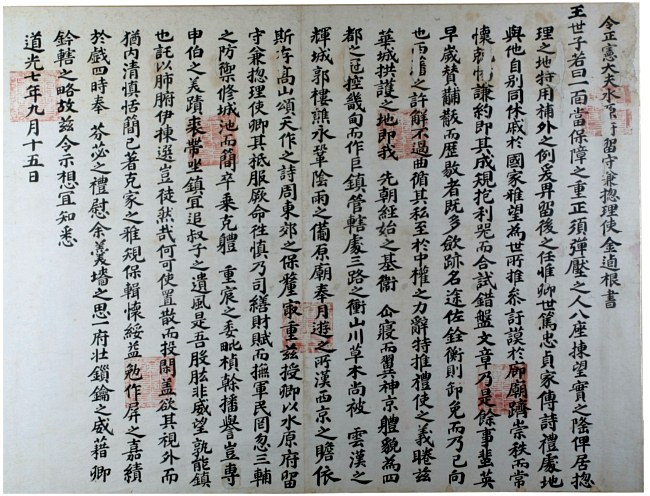 令正憲大夫水原府留守兼摠理使金逌根書
王世子若曰一面當保障之重正須彈壓之人八座揀望實之隆俾居摠
理之地特用補外之例爰畀留後之任惟卿世篤忠貞家傳詩禮處地
與他自別同休戚於國家雅望為世所推叅訏謨於廊廟躋崇秩而常
懷謙約即其成規抱利器而合試錯盤文章乃是餘事蜚英
早歲贊黼黻而歷敭者既多斂跡名途佐銓衡則卸免而乃已向
也之許解不過曲循其私至於中權之力辭特推禮使之義睠玆
華城拱護之地即我 先朝經始之基衛 仙寢而翼神京體貌為四
都之冠控畿甸而作巨鎮管轄處三路之衝山川草木尚被 雲漢之
輝城郭樓永鞏陰雨之備原廟奉月遊之所漢西京之瞻依
斯存高山頌天作之詩周東郊之保釐㝡重玆授卿以水原府留
守兼摠理使卿其祗服厥命往慎乃司繕財賦而撫軍民罔忽三輔
之防禦修城池而簡卒乗克體 重宸之委毗楨榦播譽豈專
申伯之美蹟裘帶坐鎮宜追叔子之遺風是吾股肱非威望孰能鎮
也託以肺腑伊棟選豈徒然哉何可使置散而投閒盖欲其視外而
猶內清慎恬簡已著克家之雅規保輯懷綏益勉作屏之嘉績
於戲四時奉 芬苾之禮慰余羹墻之思一府壯鎖鑰之威藉卿
鈐轄之略故玆令示想宜知悉
道光七年九月十五日